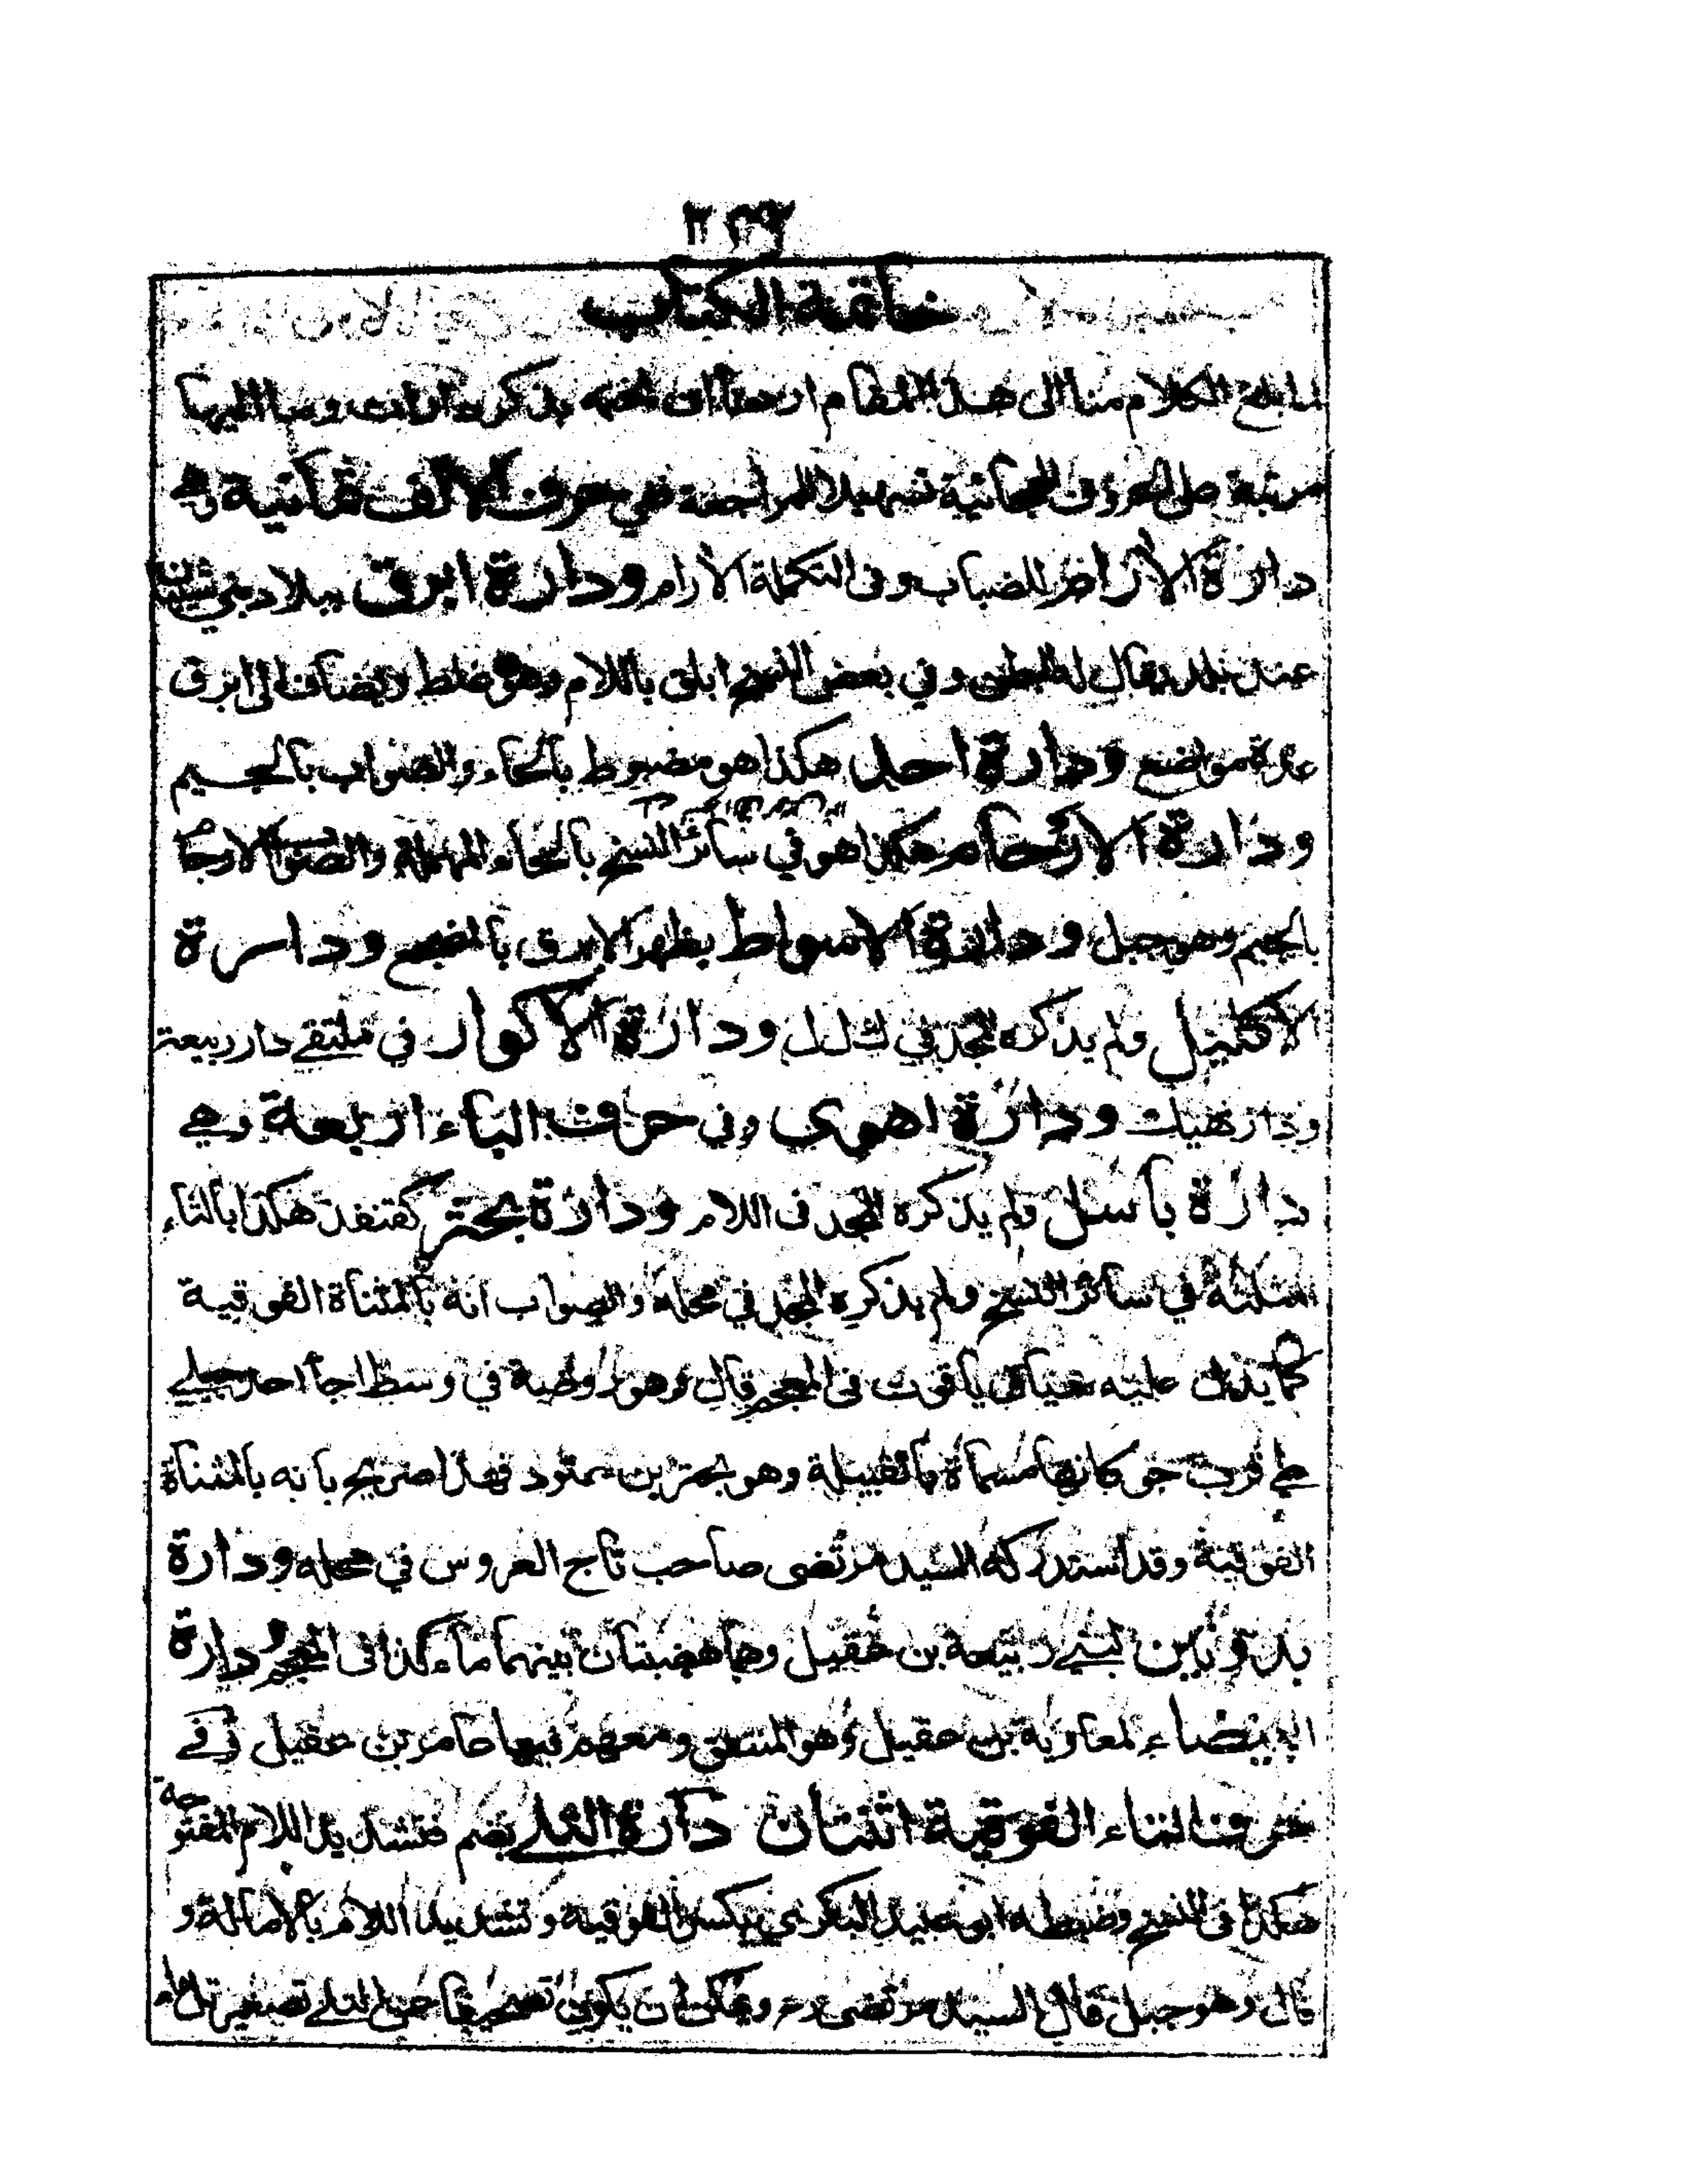 خاتمة الكتاب
لما بلغ الكلام منا الى هذا المقام اردنا ان نختمه بذكر دارات وما اليها
مرتبة على الحروف الهجائية تسهيلا للمراجعة ففي حرف الالف ثمانية وهي
دارة الأرآم للضباب وفى التكملة الأرام ودارة ابرق ببلاد بني شيبان
عند بلد يقال له البطن وفي بعض النسخ ابلق باللام وهو غلط ويضاف الى ابرق
عدة مواضع ودارة احد هكذا هو مضبوط بالحاء والصواب بالجيم
ودارة الارحام هكذا هو في سائر النسخ بالحاء المهملة والصواب الارجام
بالجيم وهو جبل ودارة الاسواط بظهر الابرق بالمضجع ودارة
الاكليل ولم يذكره المجد في ك ل ل ودارة الاكوار في ملتقى دار ربيعة
ودار نهيك ودارة اهوى وفي حرف الباء اربعة وهي
دارة باسل ولم يذكره المجد فى اللام ودارة بحثر كقنفذ هكذا بالثاء
المثلثة في سائر النسخ ولم يذكره المجد في محله والصواب انه بالمثناة الفوقية
كما يدل عليه سياق ياقوت فى المعجم قال وهو روضة في وسط اجأ احد جبلي
طي قرب جو كانها مسماة بالقبيلة وهو بحتر بن عتود فهذا صريح بانه بالمثناة
الفوقية وقد استدركه السيد مرتضى صاحب تاج العروس في محله ودارة
بدوتين لبني ربيعة بن عقيل وهما هضبتان بينهما ماء كذا فى المعجم ودارة
البيضاء لمعاوية بن عقيل وهو المنتفق ومعهم فيها عامر بن عقيل وفي
حرف التاء الفوقية اثنتان دارة التلى بضم فتشديد اللام المفتوحة
هكذا فى النسخ وضبطه ابو عبيد البكري بكسر الفوقية وتشديد اللام بالامالة و
قال وهو جبل قال السيد مرتضى رح ويمكن ان يكون تصحيفا عن التلي تصغير تل ماء